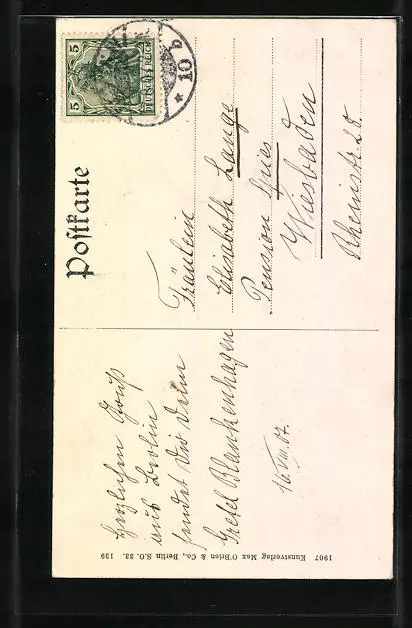 Postkarte
5 5
DEUTSCHES REICH
* 10 b
Herzlichen Gruß
aus Berlin
sendet Dir Deine
Gretel Blankenhagen
16.VIII.07.
Fräulein
Elisabeth Lange
Pension
Wiesbaden
Rheinstr.
1907 Kunstverlag Max O'Brien & Co., Berlin S.O. 33. 139